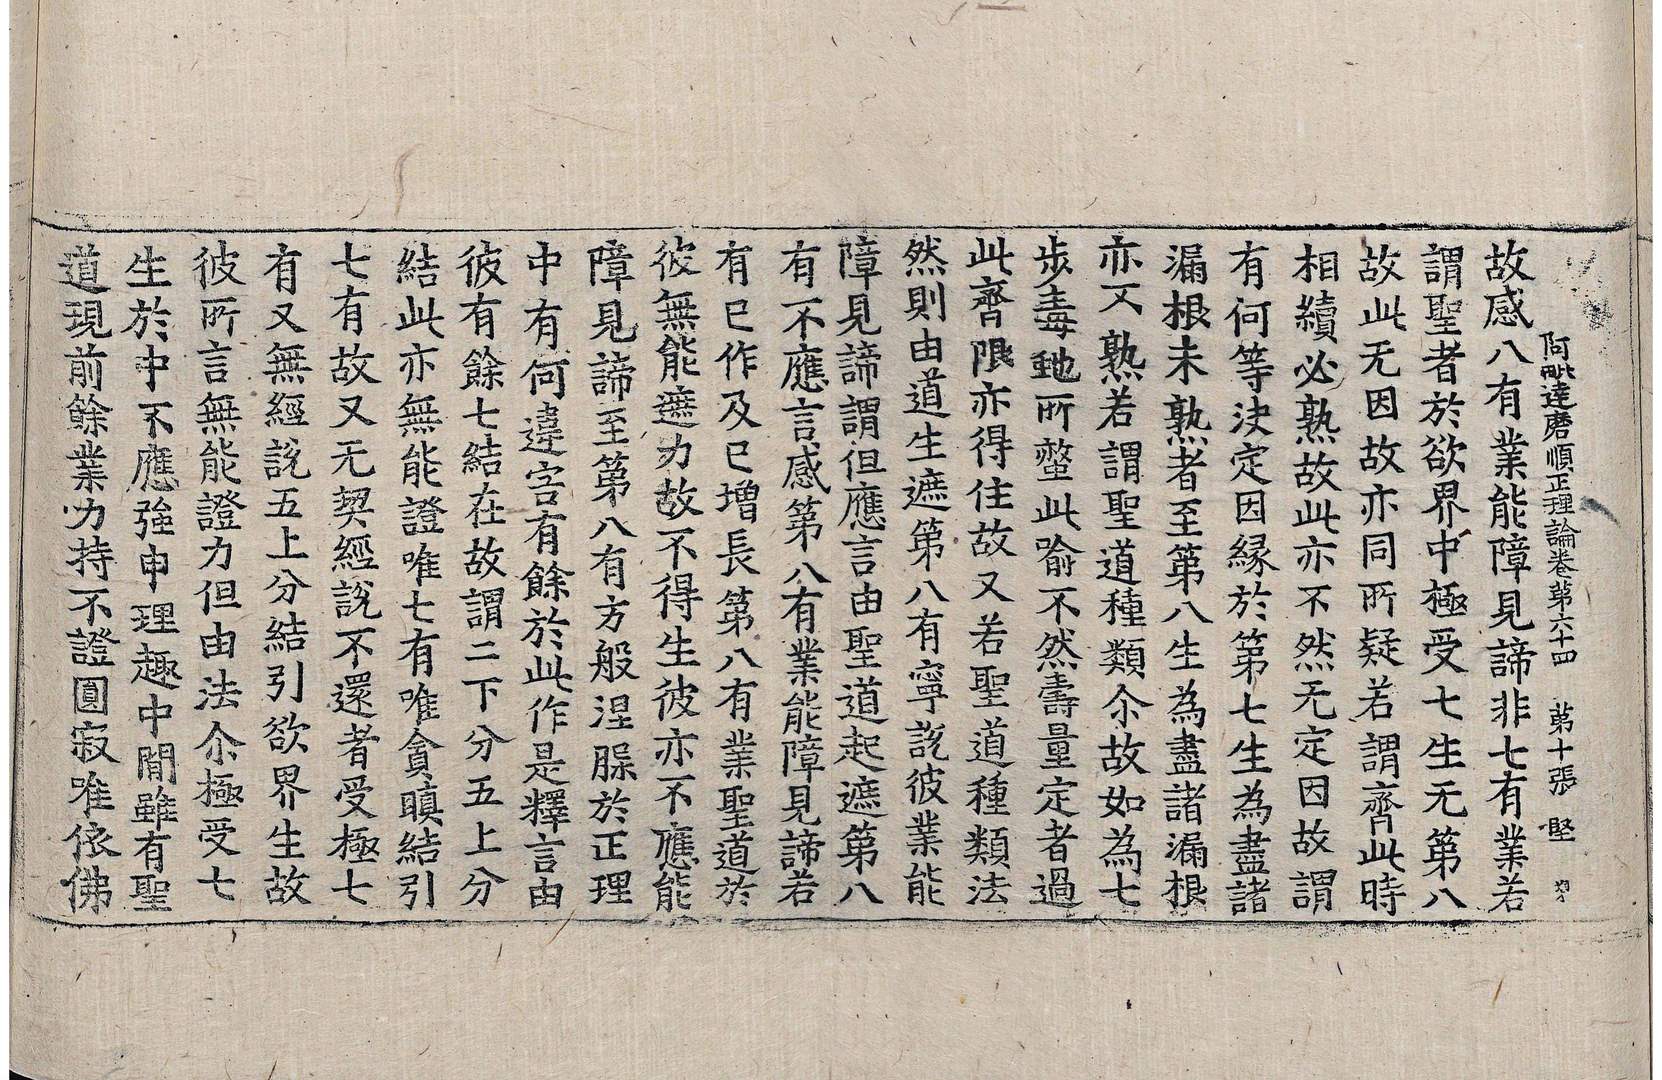 阿毗達磨順正理論卷第六十四　第十張　堅
故感八有業能障見諦非七有業若
謂聖者於欲界中極受七生无第八
故此无因故亦同所疑若謂齊此時
相續必熟故此亦不然无定因故謂
有何等決定因緣於第七生為盡諸
漏根未熟者至第八生為盡諸漏根
亦不熟若謂聖道種類尒故如為七
步毒虵所螫此喻不然壽量定者過
此齊限亦得住故又若聖道種類法
然則由道生遮第八有寧說彼業能
障見諦謂但應言由聖道起遮第八
有不應言感第八有業能障見諦若
有已作及已增長第八有業聖道於
彼無能遮力故不得生彼亦不應能
障見諦至第八有方般涅槃於正理
中有何違害有餘於此作是釋言由
彼有餘七結在故謂二下分五上分
結此亦無能證唯七有唯貪瞋結引
七有故又无契經說不還者受極七
有又無經說五上分結引欲界生故
彼所言無能證力但由法尒極受七
生於中不應強申理趣中閒雖有聖
道現前餘業力持不證圓寂唯依佛